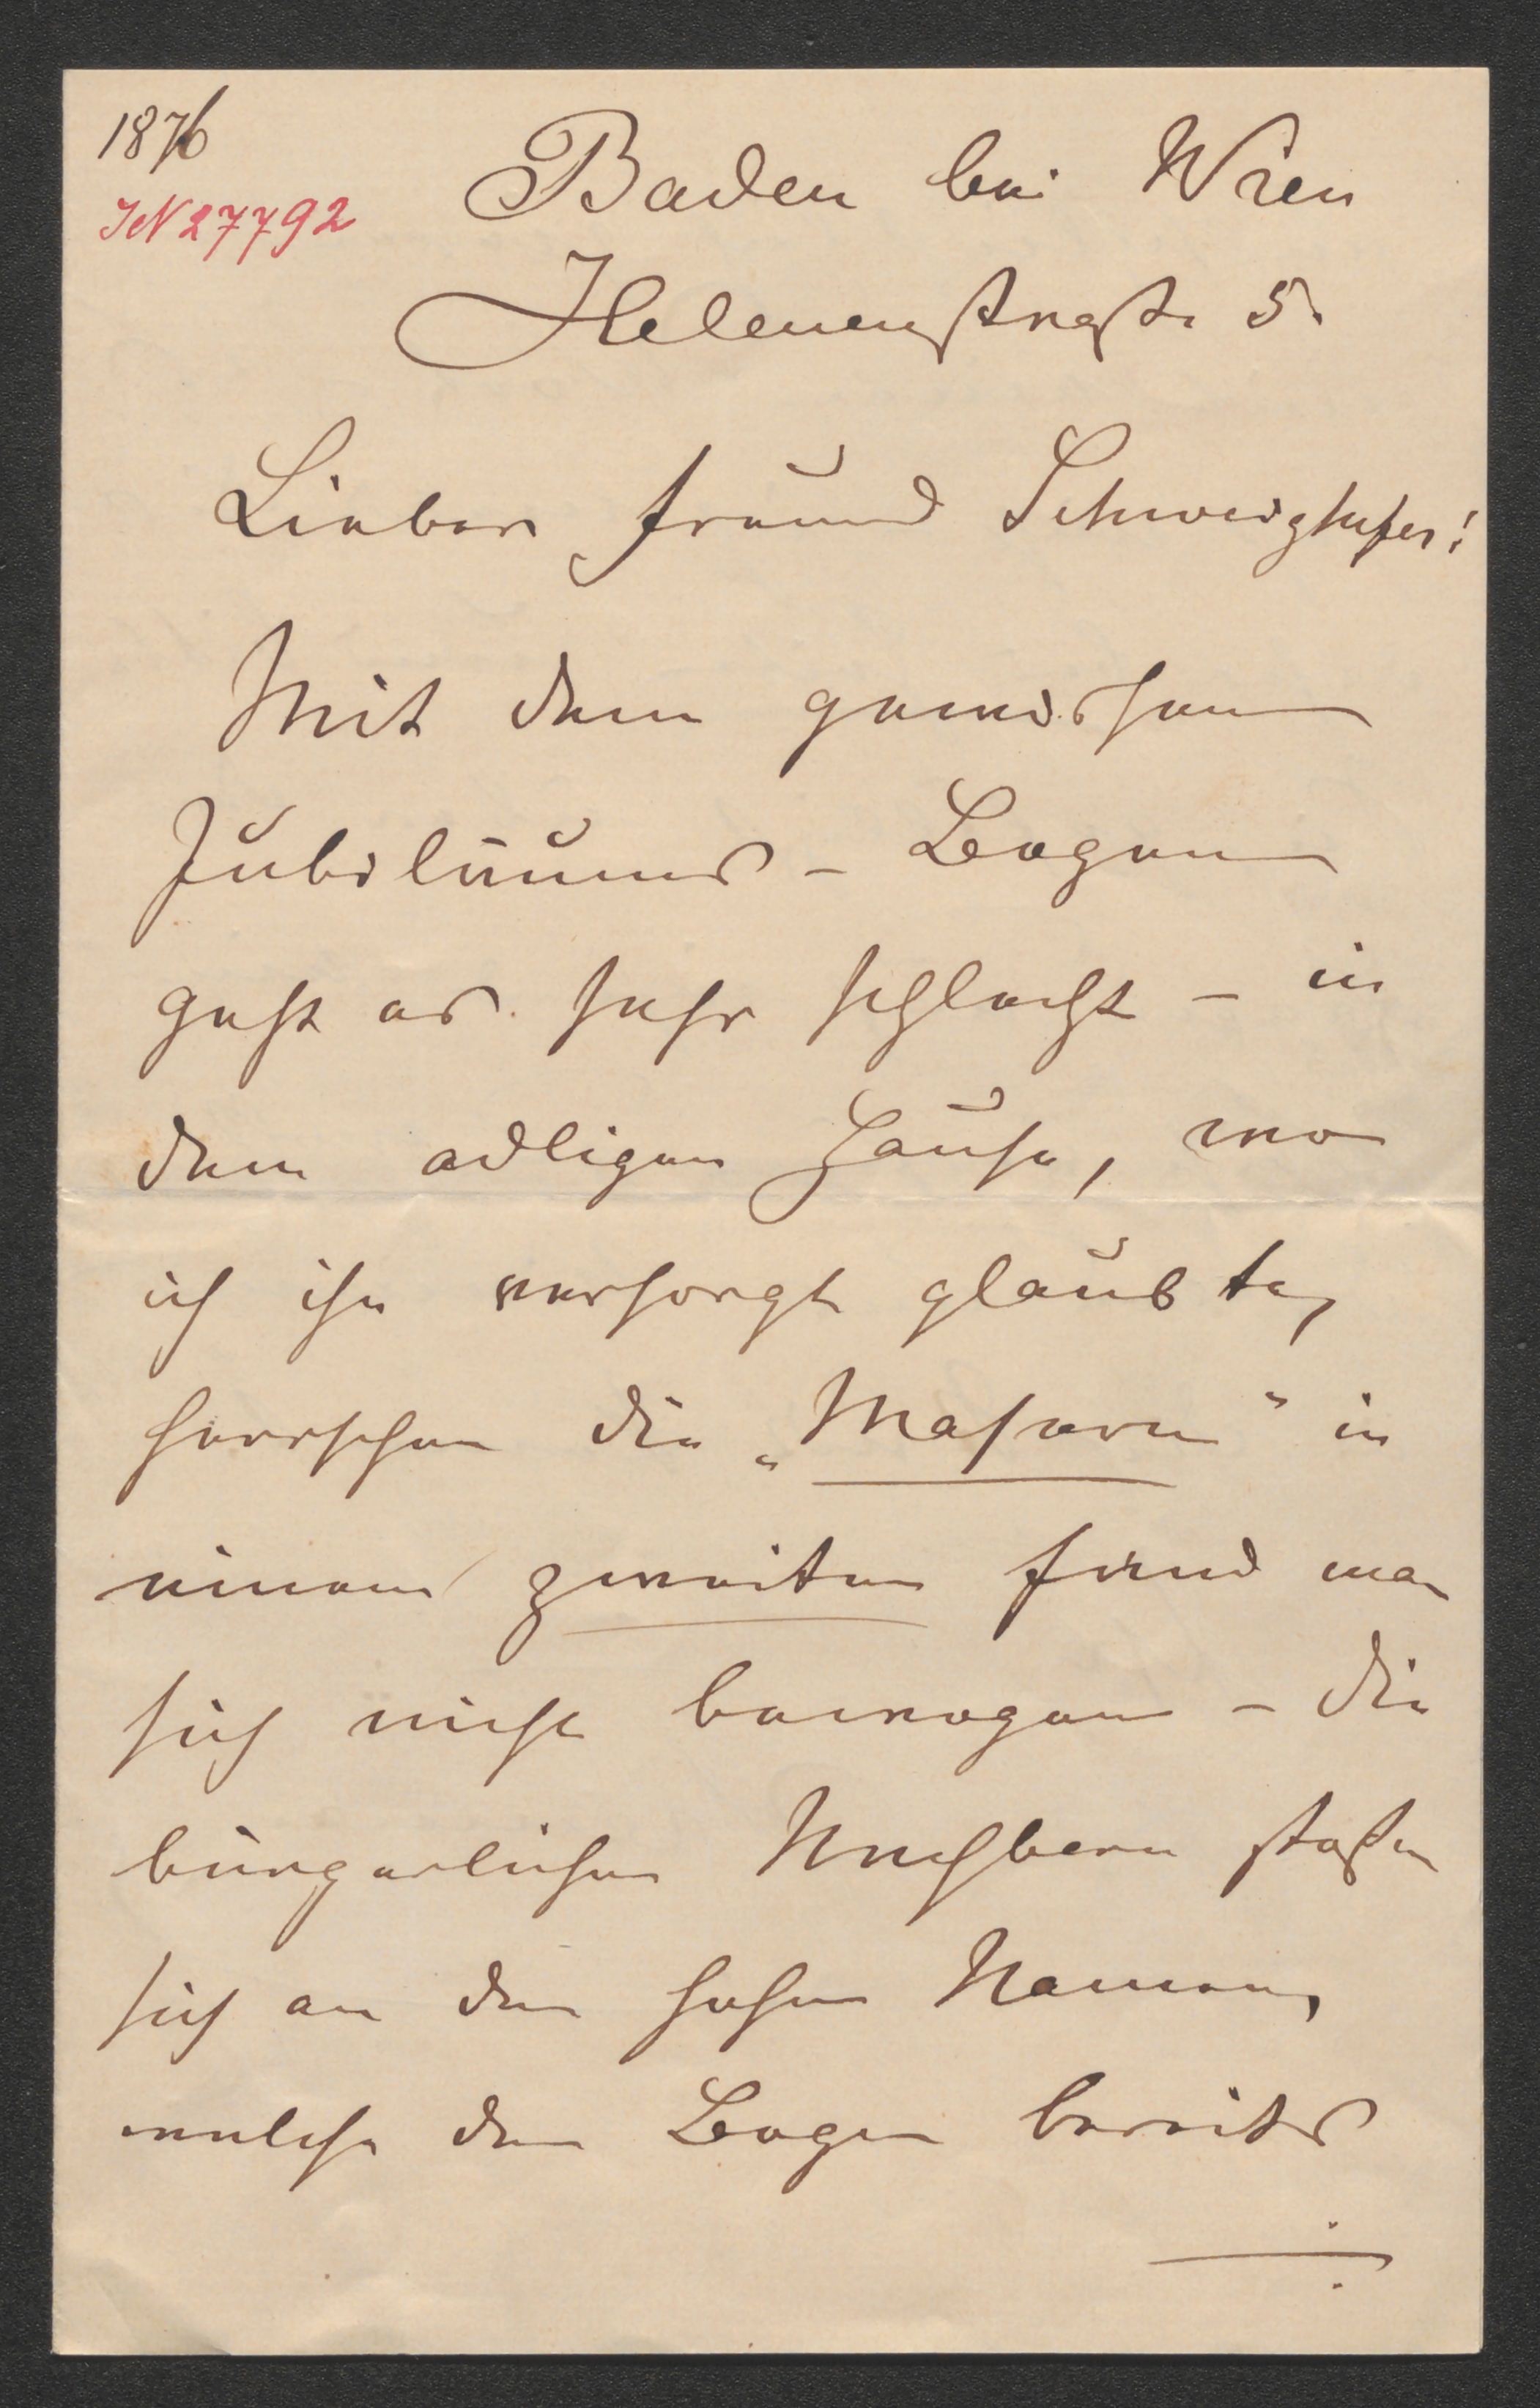 1876
IN 27792
Baden bei Wien
Helenenstraße 5.
Lieber Freund Schweighofer!
Mit dem gewissen
Jubiläums - Bogen
geht es sehr schlecht - in
dem adligen Hause, wo
ich ihn versorgt glaubte,
herrschen die „Masern" in
einem zweiten fand man
sich nicht bewogen - die
bürgerlichen Nachbarn stoßen
sich an den hohen Namen,
welche den Bogen bereits